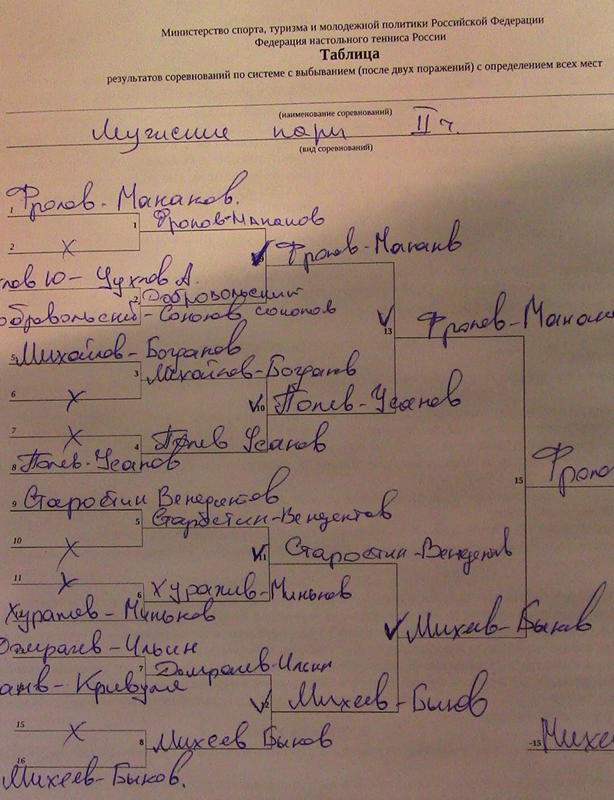 Министерство спорта, туризма и молодежной политики Российской Федерации
Федерация настольного тенниса России
Таблица
результатов соревнований по системе с выбыванием (после двух поражений) с определением всех мест
(наименование соревнований)
Мужские пары II ч.
(вид соревнований)
1 Фролов - Манаков.
1 Фролов-Манаков
2 X
Фролов-Манаков
Ю - Чухлов А.
2 Добровольский
Добровольский - Соколов Соколов
13
Фролов-Манаков
5 Михайлов - Богданов
3 Михайлов-Богданов
6 X
10 Попев-Усанов
7 X
4 Попев Усанов
8 Попев-Усанов
15
Фроло
9 Старостин Венедиктов
5 Старостин-Венедиктов
10 X
11 Старостин-Венедиктов
11 X
6 Журавлев-Миньков
Журавлев - Миньков
Михеев-Быков
Домрачев - Ильин
7 Домрачев-Ильин
Кривуля
12 Михеев-Быков
15 X
8 Михеев Быков
-15 Михе
16
Михеев-Быков.